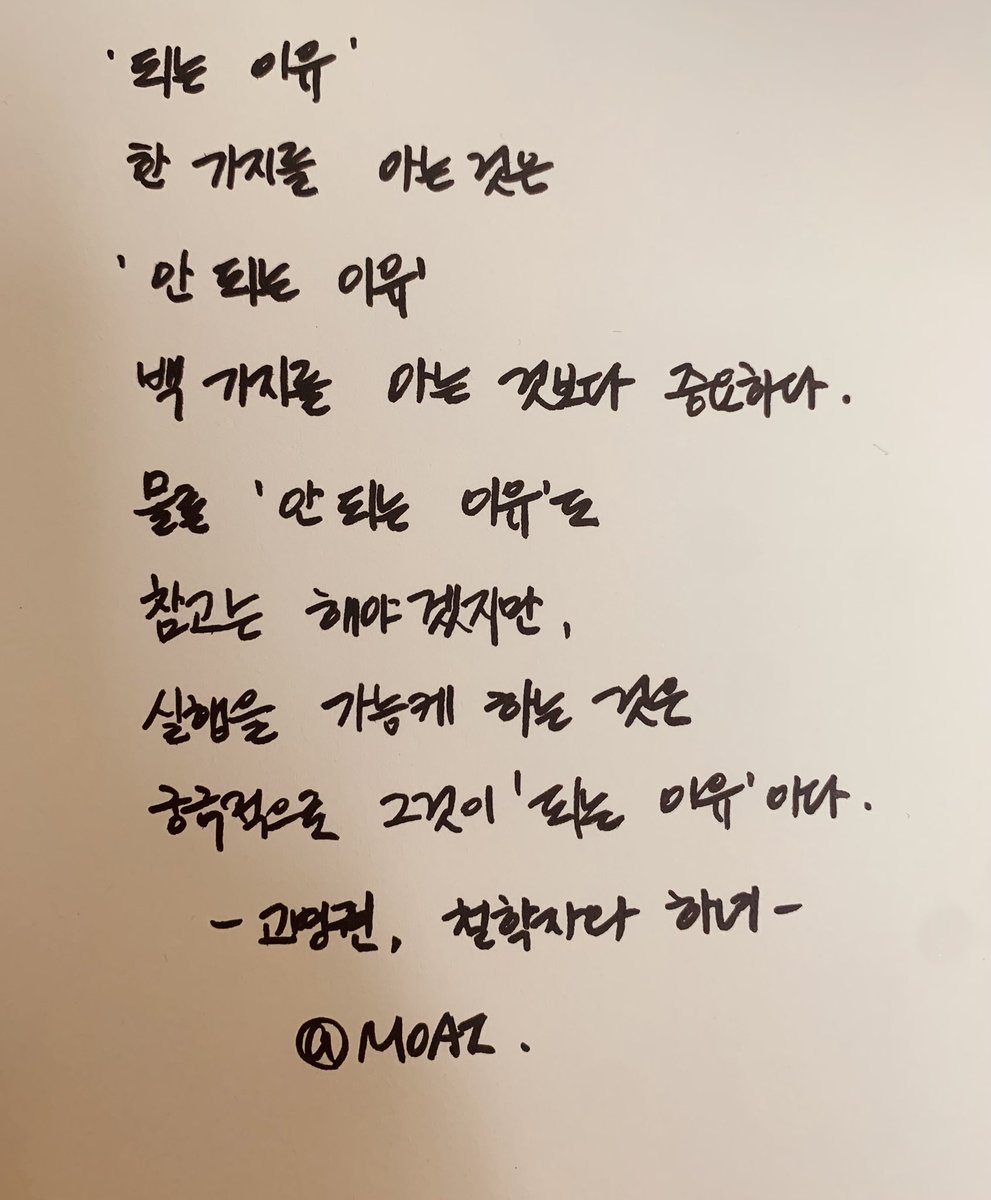 '되는 이유'
한 가지를 아는 것은
'안 되는 이유'
백 가지를 아는 것보다 중요하다.
물론 '안 되는 이유'도
참고는 해야겠지만,
실행을 가능케 하는 것은
궁극적으로 그것이 '되는 이유'이다.
- 고명권, 철학자와 하녀 -
@MOAZ.